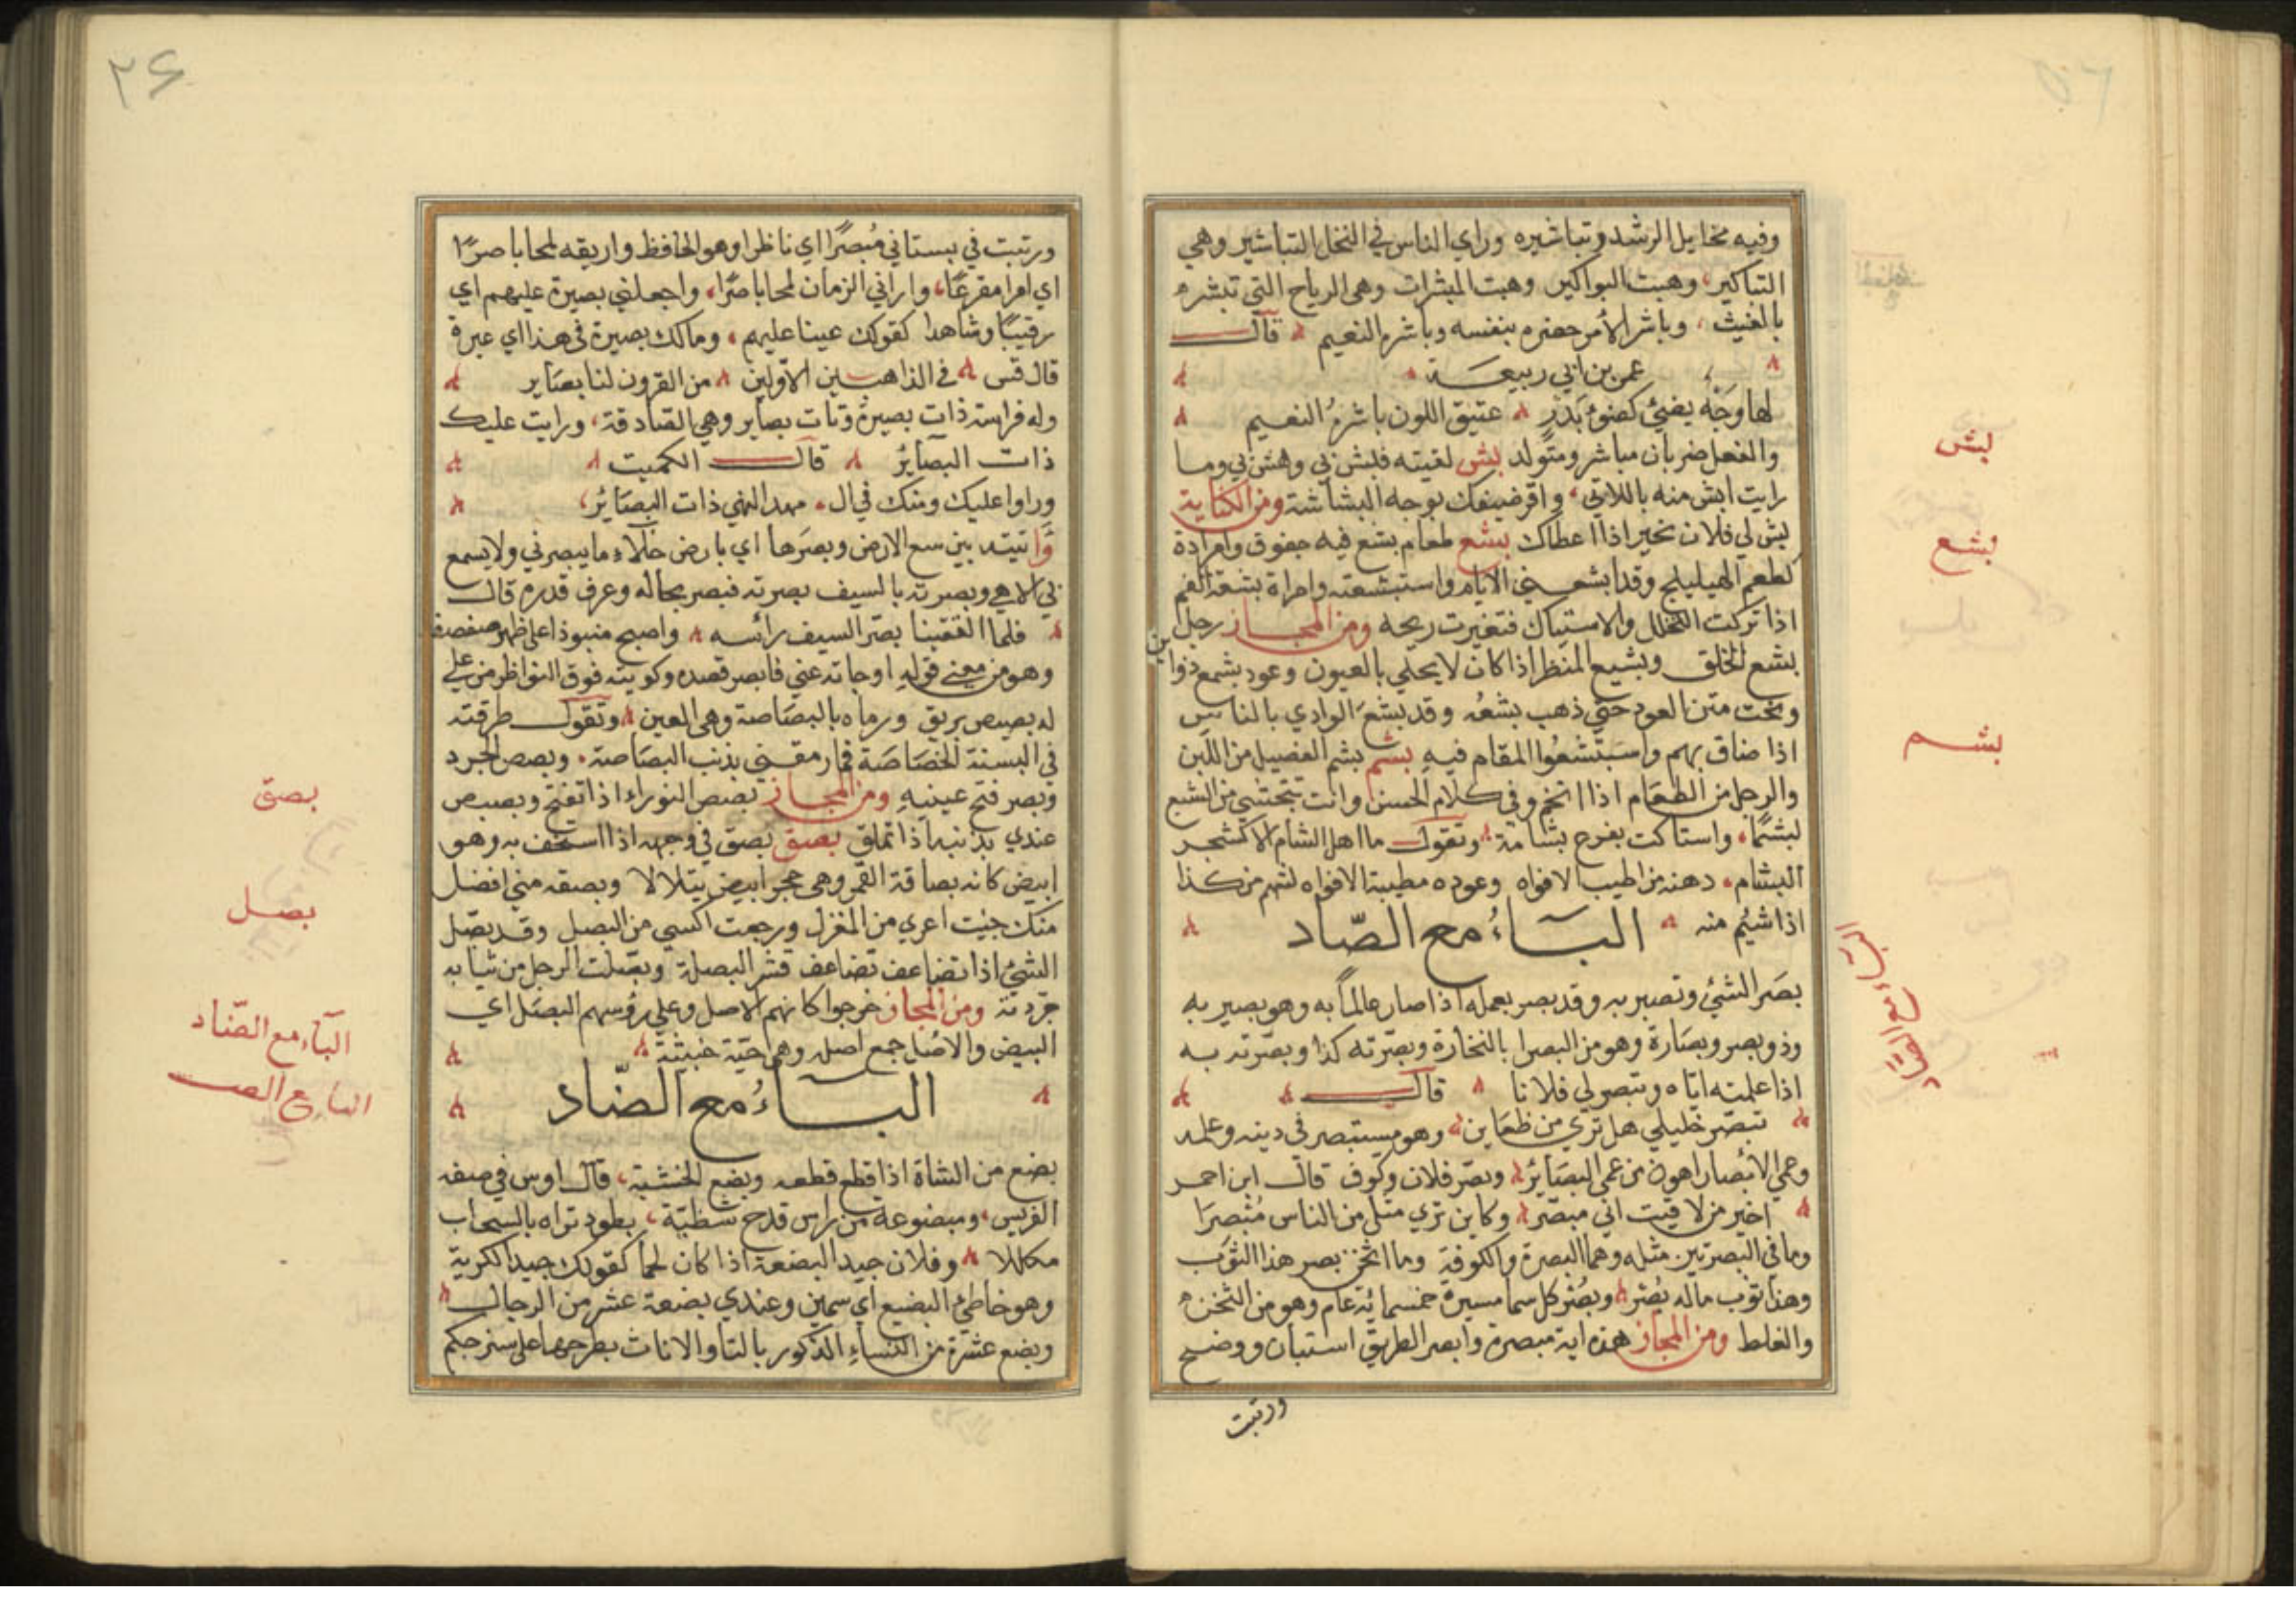 وفيه مخايل الرشد وتباشيره وراي الناس في النخل التباشير وهي
التباكير، وهبت البواكير وهبت المبشرات وهي الرياح التي تبشره
بالغيث، وباشر الأمر حضره بنفسه وباشره النعيم قالــــ
عمر بن ابي ربيعــة
لها وَجْهٌ يضيئ كضوءِ بَدْرٍ عتيق اللون باشرهُ النعيم
والفعل ضربان مباشر ومتولد بش لقيته فبش بي وهش بي وما
رايت ابش منه باللاتي، واقر ضيفك بوجه البشاشة ومن الكناية
بش لي فلان بخير اذا اعطاك بشع طعام بشع فيه حفوف ومرارة
كطعم الهيليلج وقد ابشعــني الايام واستبشعته وامراة بشعة الفم
اذا تركت التخلل والاستياك فتغيرت ريحه ومن المجــاز رجل
بشع الخلق وبشيع المنظر اذا كان لا يحلي بالعيون وعود بشع ذوا
بن
ونحت متن العود حتي ذهب بشعُه وقد بشعَ الوادي بالناس
اذا ضاق بهم واستبشعُوا المقام فيهِ بشم بشم الفصيل من اللبن
والرجل من الطعَام اذا اتخم وفي كلام الحسن وانت تتجشي من الشبع
بشمًا، واستاكت بفرع بشامة وتقولـــ ما اهل الشام الا كشجر
البشام، دهنه من اطيب الافواه وعوده مطيبة الافواه لشهم من كذا
اذا شيُم منه البــاءُ مع الصّاد
بصَر الشيئ وتصبر به وقد بصر بعمله اذا صار عالماً به وهو بصير به
وذو بصر وبصَارة وهو من البصرا بالتجارة وبصّرته كذا وبصّرته بــه
اذا علمته ايّاه وتبصر لي فلانا قالـــ
تبصّر خليلي هل تري من ظعَاين وهو مستبصر في دينه وعلمه
وعمي الابْصار اهون من عمي البصَائر وبصّر فلان وكوف قال ابن احمر
اخبر من لاقيت اني مبصّر وكاين تري مثلي من الناس مُبْصِرَا
وما في البصرتين مثله وهما البصرة والكوفة وما اثخن بصر هذا الثوب
وهذا ثوب ماله بُصْر وبصْر كل سما مسيرة خمسمائة عام وهو من الثخن
والغلظ ومن المجاز هذه اية مبصرة وابصر الطريق استبان ووضح
ورتبت
بش
بشع
بشــم
البَاءُ مع الصَّاد
٢٤
ورتبت في بستاني مُبصرًا اي ناظرا وهو الحافظ واريقه لمحا باصرًا
اي امرا مفزعًا، واراني الزمان لمحا باصرًا، واجعلني بصيرة عليهم اي
رقيبًا وشاهدا كقولك عينا عليهم، ومالك بصيرة في هذا اي عبرة
قال قس في الذاهبــين الاوّلين من القرون لنا بصَاير
وله فراسة ذات بصيرة وذات بصاير وهي الصَادقة، ورايت عليك
ذات البصآئرُ قالـــ الكميت
وراوا عليك ومنك في ال، مهد النهي ذات البصَائر،
وَاتيته بين سمع الارض وبصَرها اي بارض خلاءٍ ما يبصرني ولا يسمع
بي الا هي وبصرته بالسيف بصرته فبصر بحاله وعرف قدره قالـــ
فلما التقينا بصّر السيف رائسه واصبح منبوذا علي ظهر صفصف
وهو من معني قوله اوجاته عني فابصر قصده وكويته فوق النواظر من علي
له بصيص بريق ورماه بالبصّاصة وهي العين وتقولـــ طرقته
في السنة الخصَاصَة فما رمقــني بذنب البصاصة، وبصص الجرد
وبصر فتح عينيهِ ومن المجــاز بصص النوراء اذا تفتح وبصبص
عندي بذنبه اذا تملق بصق بصق في وجهه اذا استخف به وهو
ابيض كانه بصاقة القمر وهي حجر ابيض يتلالا وبصقه مني افضل
منك جيت اعري من المغزل ورجعت اكسي من البصل وقد بصّل
الشيئ اذا تضاعف تضاعف قشر البصلة وبصّلت الرجل من ثيابه
جرّدته ومن المجاز خرجوا كانهم الاصل وعلي رؤسهم البصَل اي
البيض والاصَل جمع اصله وهي حيّة خبيثة
البــاءُ مع الضّاد
بضع من الشاة اذا قطع قطعه وبضع الخشبة، قال اوس في صفه
القوس، ومبضوعة من راس قدح شظيّة، بطود تراه بالسحاب
مكللا وفلان جيد البضعة اذا كان لحما كقولك جيد الكرية
وهو خاظئ البضيع اي سمين وعندي بضعة عشر من الرجال
وبضع عشرة من النساء الذكور بالتا والاناث بطرحها علي سنن حكم
بصق
بصل
البَآء مع الضّاد
الباء مع الضــ